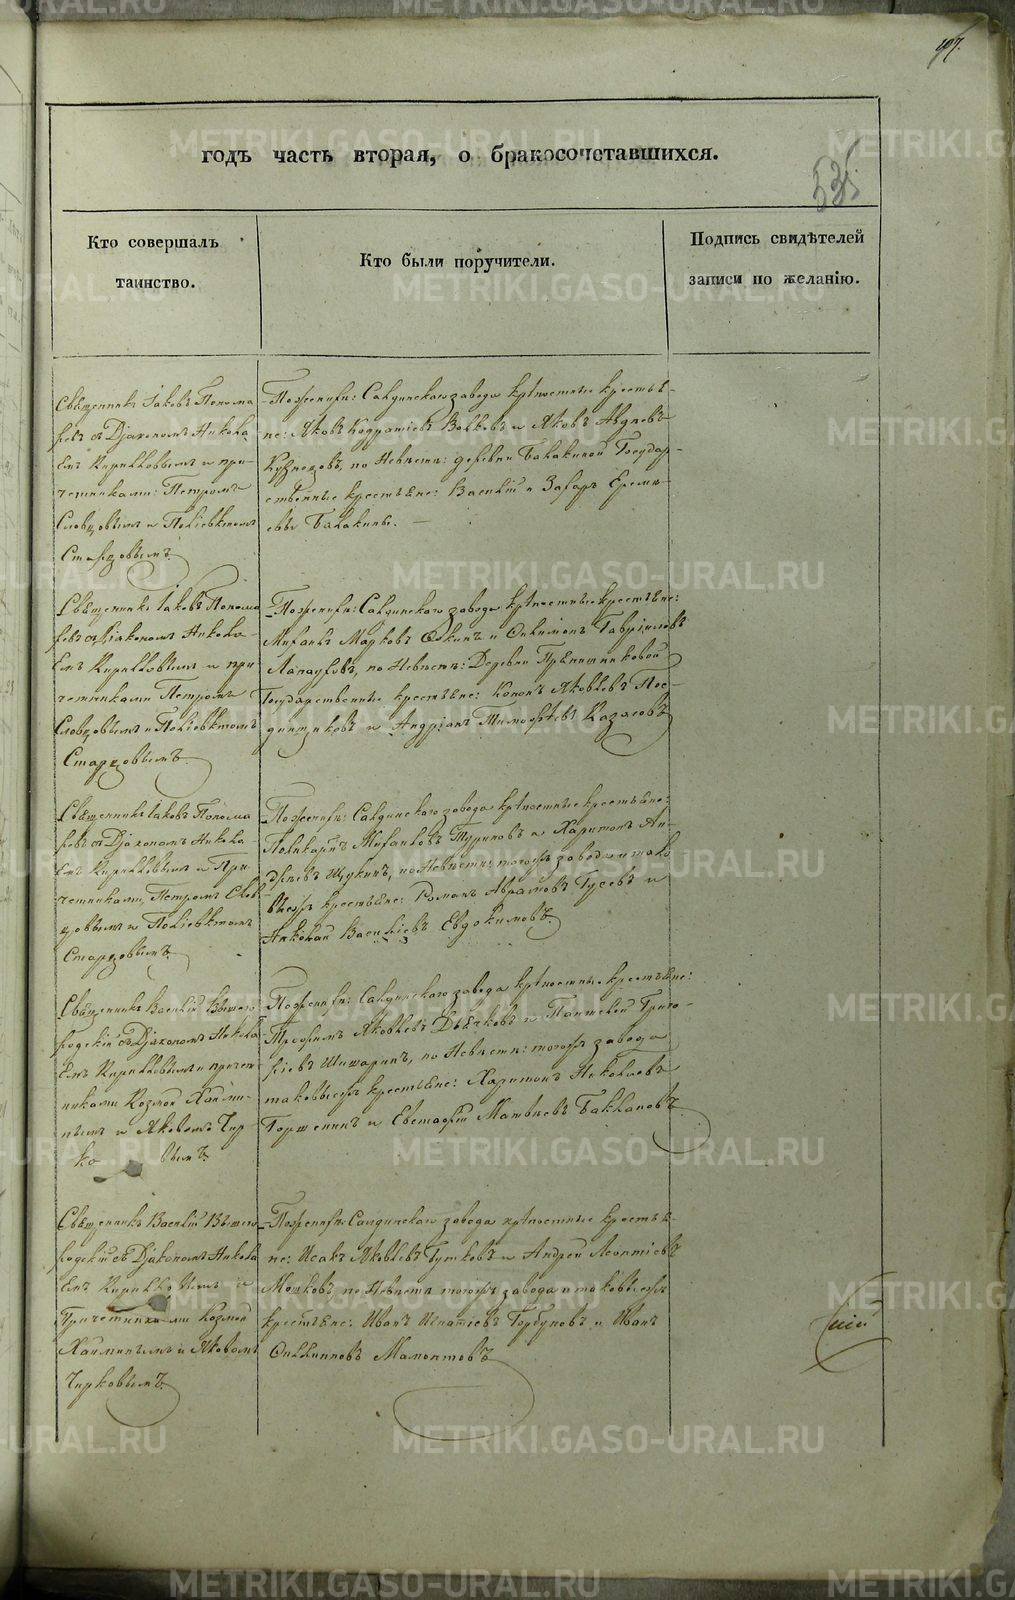 годъ часть вторая, о бракосочетавшихся.
535
Кто совершалъ
таинство.
Кто были поручители.
Подпись свидѣтелей
записи по желанію.
Священникъ Іаковъ Понома
ревъ съ Діакономъ Никола
емъ Кирилловымъ и при-
четниками: Петромъ
Словцовымъ и Поліевктомъ
Старцовымъ.
По женихѣ: Салдинскаго завода крѣпостные крестья-
не: Яковъ Кодратіевъ Волковъ и Яковъ Авдѣевъ
Кузнецовъ, по Невѣсть: деревни Балакиной Государ-
ственные крестьяне: Василій и Захаръ Ереми-
евы Балакины.
Священникъ Іаковъ Понома
ревъ съ Діакономъ Никола-
емъ Кирилловымъ и при
четниками Петромъ
Словцовымъ и Поліевктомъ
Старцовымъ.
По женихѣ: Салдинскаго завода крѣпостные крестьяне:
Михаилъ Марковъ и Филимонъ Гавріиловъ
по Невѣсть: Деревни Прянишниковой
Государственные крестьяне: Кононъ Яковлевъ Пос-
и Андріанъ Тимофѣевъ Казаковъ
Священникъ Іаковъ Понома
ревъ съ Діакономъ Никола-
емъ Кирилловымъ и При
четниками, Петромъ Слов
цовымъ и Поліевктомъ
Старцовымъ.
По женихѣ: Салдинскаго завода крѣпостные крестьяне:
Поликарпъ Михаиловъ Туриновъ и Харитонъ Ан-
дреевъ Щукинъ, по Невѣсть: тогожъ завода и тако
выежъ крестьяне: Романъ Аврамовъ Гусевъ и
Николай Василіевъ Евдокимовъ.
Священникъ Василій Вышего
родскій съ Діакономъ Никола
емъ Кирилловымъ и причет
никами Козмой Хайми-
нымъ и Яковомъ Чир
ко вымъ.
По женихѣ: Салдинскаго завода крѣпостные крестьяне:
Трофимъ Яковлевъ Дьячковъ и Пантелей Григо-
ріевъ Шишаринъ, по Невѣсть: тогожъ завода
таковыежъ крестьяне: Харитонъ Николаевъ
Горшенинъ и Евстафій Матвѣевъ Баклановъ
Священникъ Василій Вышего
родскій съ Діакономъ Никола
емъ Кирилловымъ и
Причетниками Козмой
Хайминымъ и Яковомъ
Чирковымъ.
По женихѣ: Салдинскаго завода крѣпостные крестья-
не: Исакъ Яковлевъ Гутковъ и Андрей Леонтіевъ
Мошковъ, по Невѣсть тогожъ завода и таковыежъ
крестьяне: Иванъ Игнатіевъ Горбуновъ и Иванъ
Филиповъ Мамонтовъ
METRIKI.GASO-URAL.RU